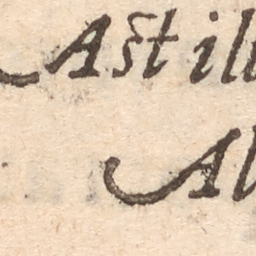 Aſt il
Al